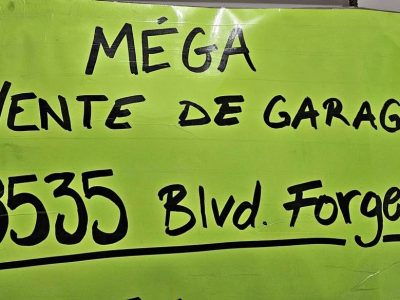 MÉGA
VENTE DE GARAG
3535 Blvd. Forge